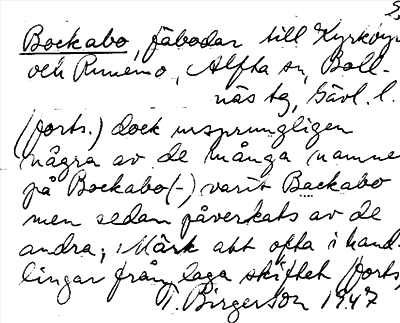 Bockabo, fäbodar till Kyrkbyn
och Runemo, Alfta sn, Boll-
näs tg, Gävl. l.
(forts.) dock ursprungligen
några av de många namnen
på Bockabo(-) varit Backabo
men sedan påverkats av de
andra; Märk att ofta i hand-
lingar från laga skiftet (forts.)
T. Birgerson 1947